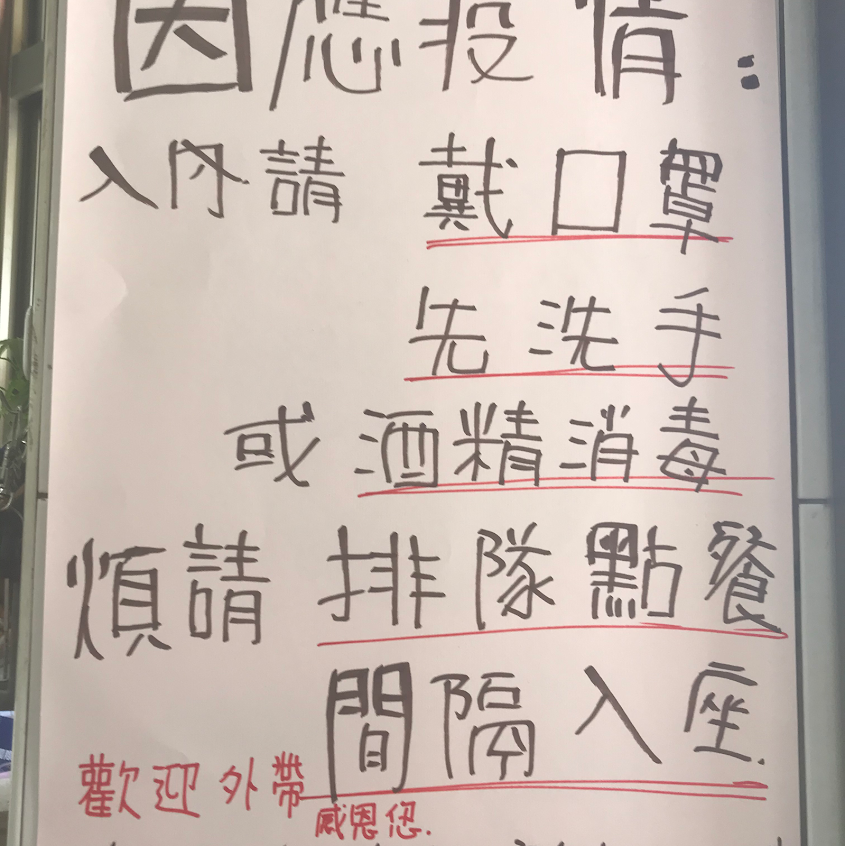 因應疫情:
入內請 戴口罩
先洗手
或酒精消毒
煩請 排隊點餐
間隔入座.
歡迎外帶
感恩您.